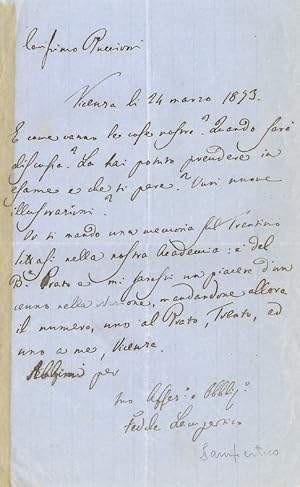 Carissimo Puccioni
Vicenza li 24 marzo 1873.
E come vanno le cose nostre? Quando sarà
discussa? La hai potuto prendere in
esame e che ti pare? Vuoi nuove
illustrazioni?
Io ti mando una memoria sul Trentino
lettasi nella nostra Academia: è del
Prato e mi faresti un piacere d'un
cenno nella Nazione, mandandone allora
il numero, uno al Prato, Trento, ed
uno a me, Vicenza.
Abbimi per
tuo Affez.o Obbl.o
Fedele Lampertico
Lampertico